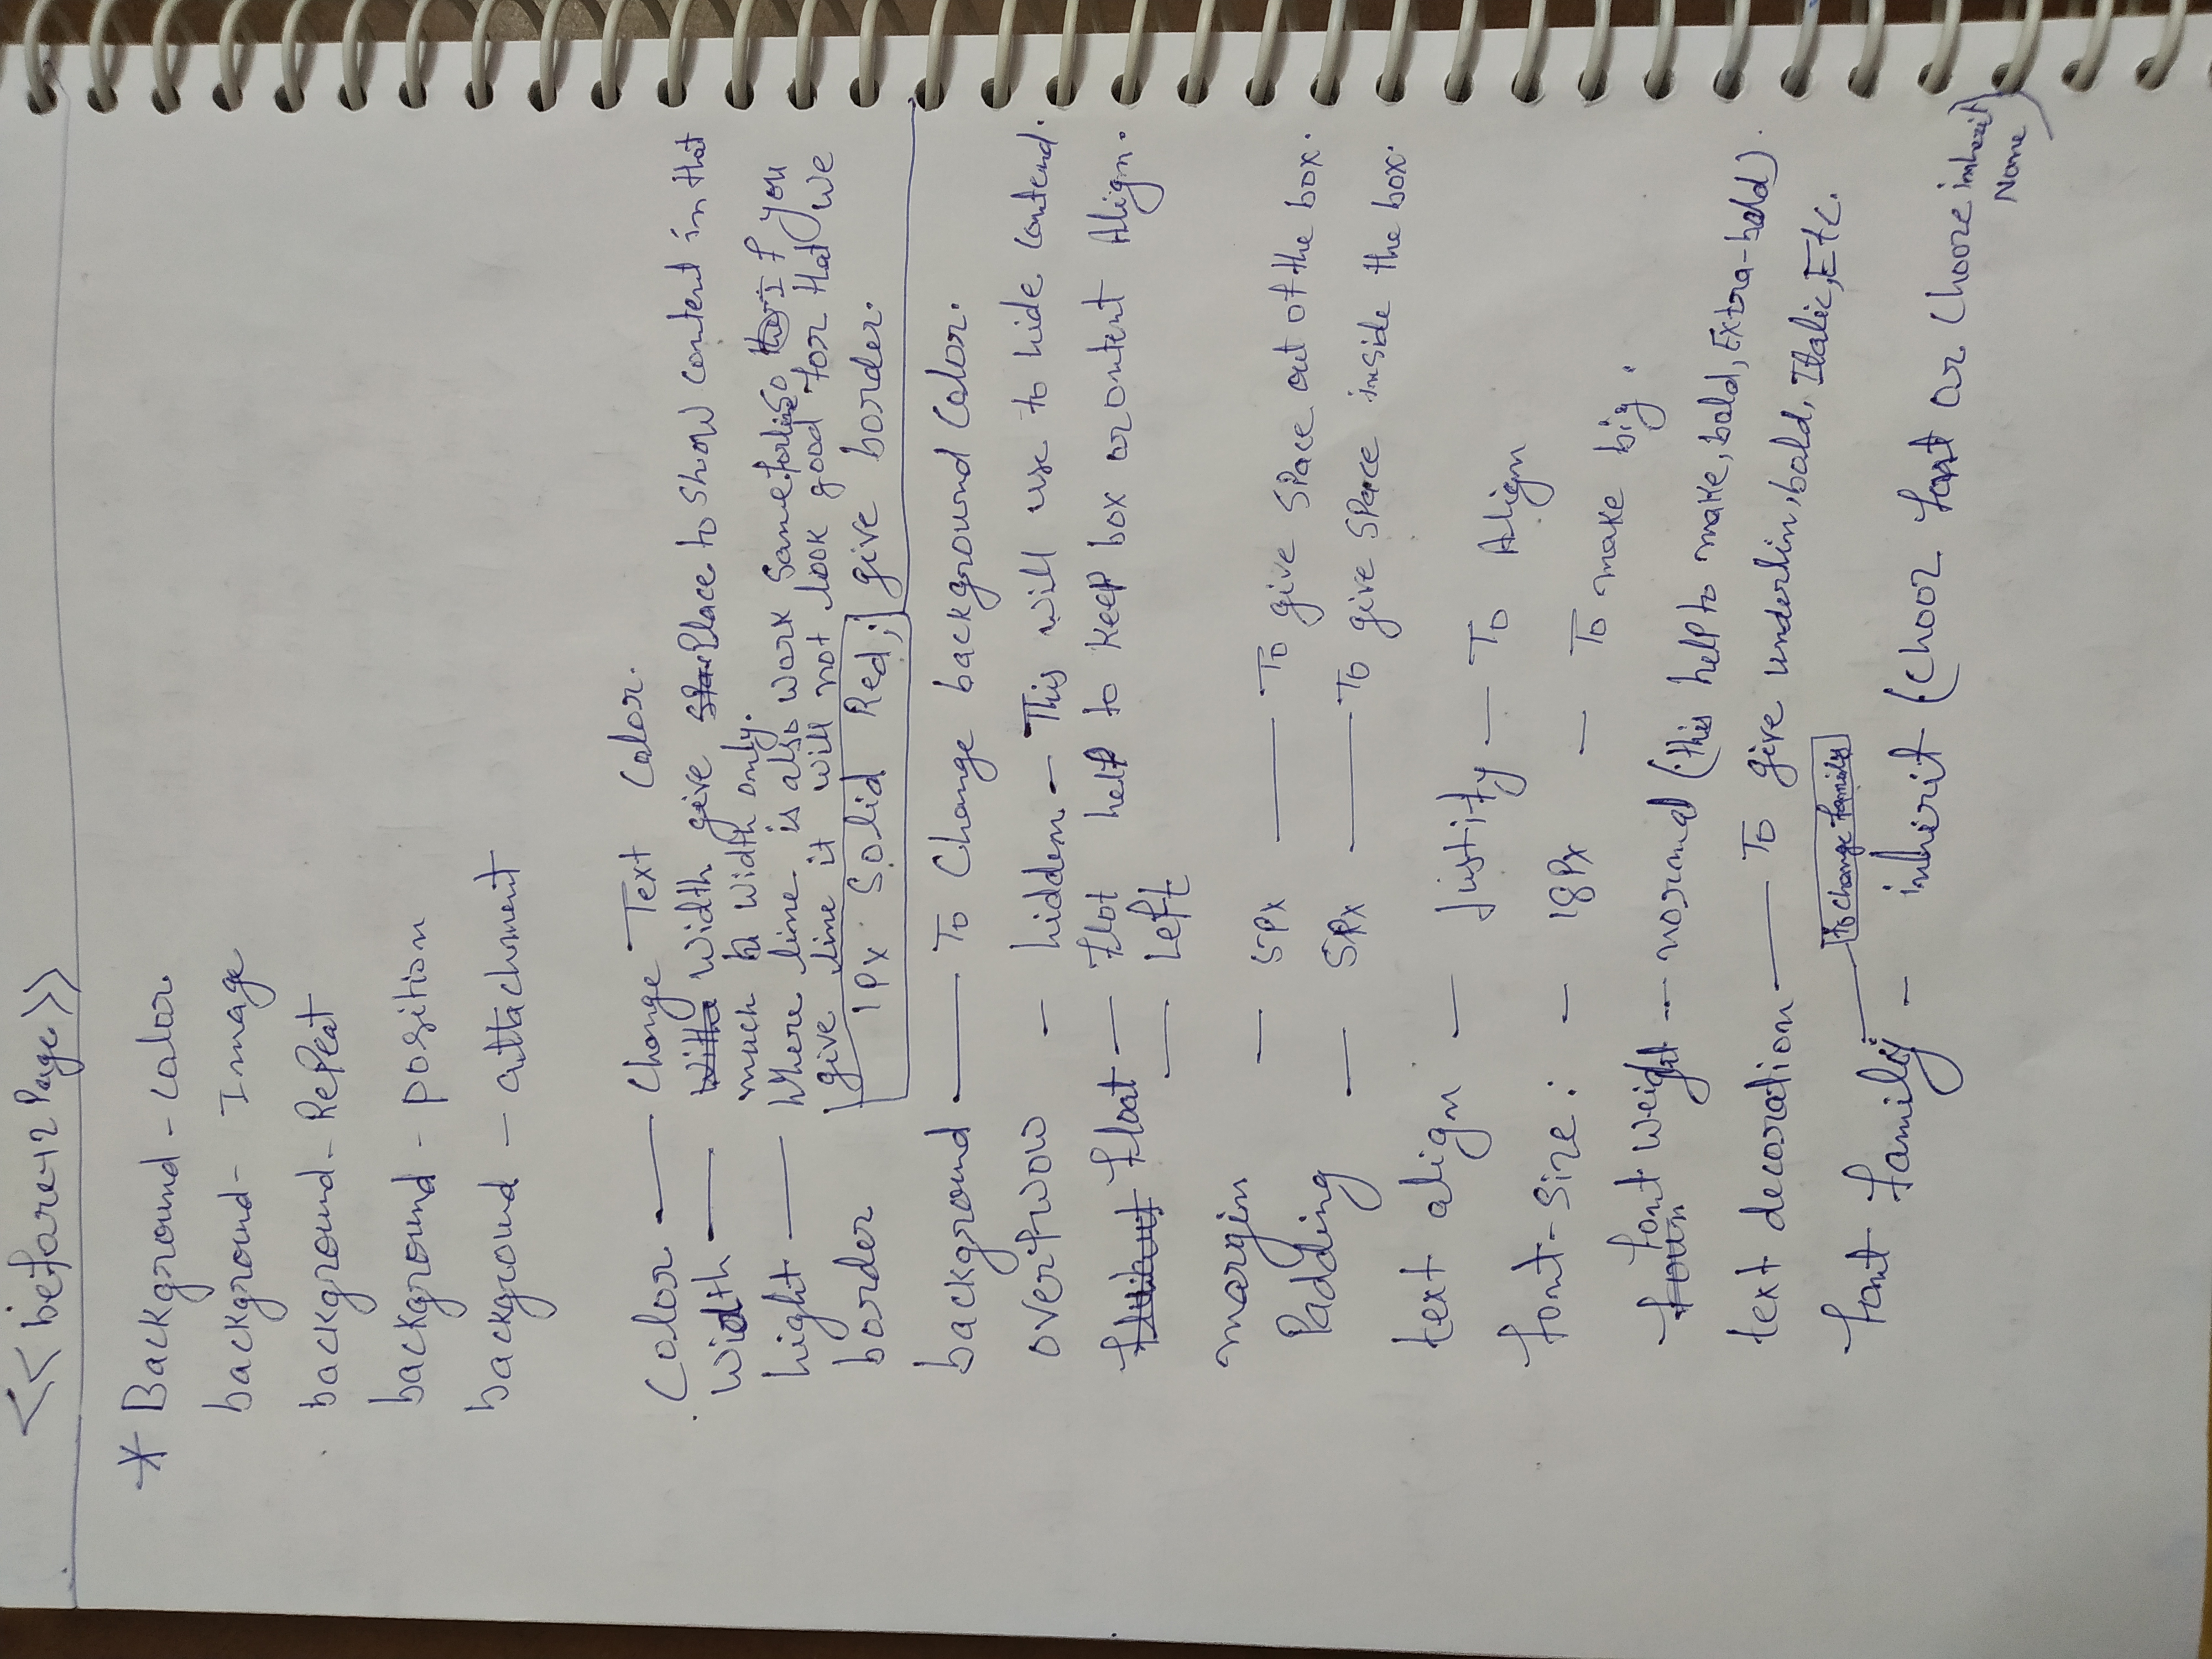 << before 12 Page >>
* Background - Color
background - Image
background - Repeat
background - position
background - attachment
Color — Change Text Color.
width — width give Place to show content in that
much width only.
hight — Where line is also work same for line So If you
give line it will not look good for that we
border 1Px Solid Red; give border.
background — To Change background Color.
overflwow - hidden - This will use to hide contend.
float — flot help to keep box or ontent Align.
— left
margin — 5Px — To give space out of the box.
Padding — 5Px — To give sparce inside the box.
text align — Justify — To Align
font-Size : — 18Px — To make big.
font weight - normal (this help to make, bold, Extra-bold).
text decoration — To give underlin, bold, Italic, Etc.
To change family
font family - inherit (Choor font or Chooze inherit
None)